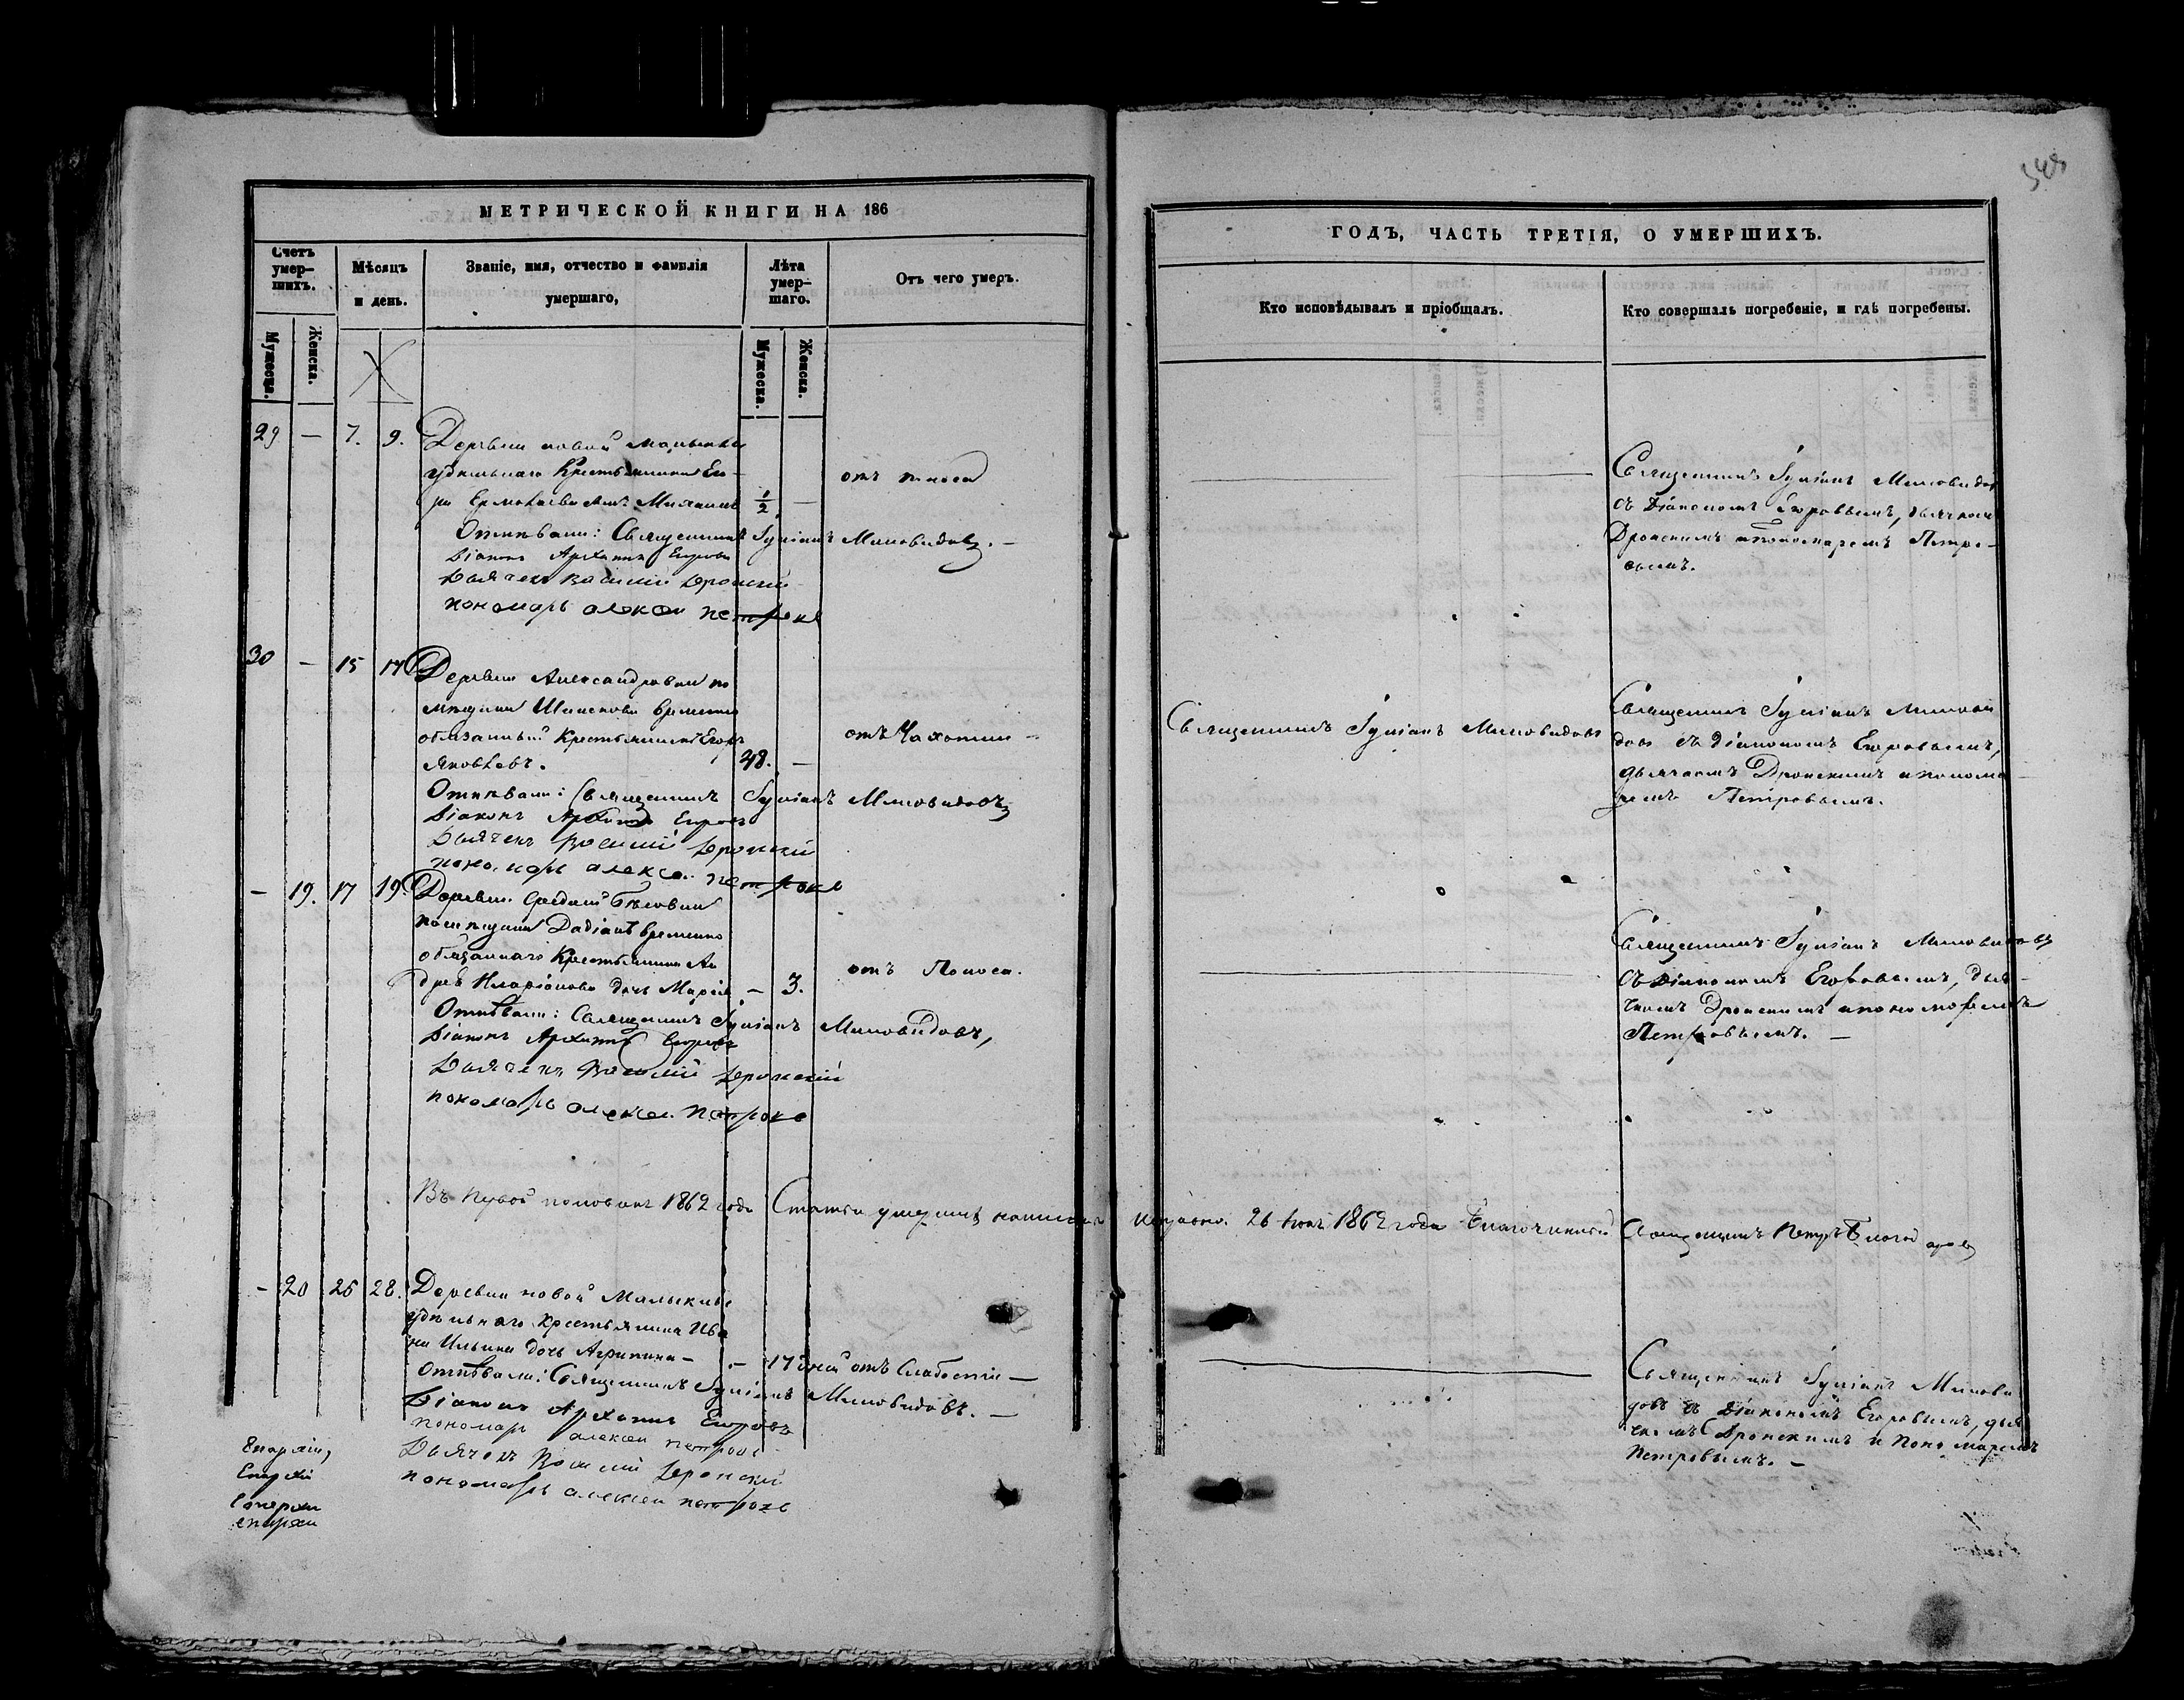 МЕТРИЧЕСКОЙ КНИГИ НА 186
Счетъ умер-шихъ.
Мѣсяцъ и день.
Званіе, имя, отчество и фамилія умершаго,
Лѣта умер-шаго.
Отъ чего умеръ.
Мужеска.
Женска.
Мужеска.
Женска.
29 — 7. 9. Деревни новой Малыклы
удѣльнаго Крестьянина Его-
ра Ермолаева сынъ Михаилъ 1/2 — отъ поноса
Отпѣвали: Священникъ Іуліанъ Миловидовъ. —
Діаконъ Архипъ Егоровъ
Дьячекъ Василій Дронскій
пономарь алексеи петровъ
30 — 15 17 Деревни Александровки по
мѣщицы Временно
обязанный Крестьянинъ Егоръ
Яковлевъ. 48. — отъ Чахотки —
Отпѣвали: Священникъ Іуліанъ Миловидовъ
Діаконъ Архипъ Егоровъ
Дьячекъ Василій Дронскій
пономарь алексеи петровъ
— 19. 17 19. Деревни Средней
помѣщицы Дадіанъ временно
обязаннаго Крестьянина Ан
дрея Иларіонова дочь Марія — 3. отъ Поноса.
Отпѣвали: Священникъ Іуліанъ Миловидовъ,
Діаконъ Архипъ Егоровъ
Дьячекъ Василій Дронскій
пономарь алексеи петровъ
Въ первой половинѣ 1862 года Статьи умершихъ написаны
— 20 26 28. Деревни новой Малыклы
удѣльнаго Крестьянина Ива
на Ильина дочь Агрипина — — 17 дней отъ Слабости —
Отпѣвали: Священникъ Іуліанъ Миловидовъ. —
Діаконъ Архипъ Егоровъ
пономарь алексеи петровъ
Дьячекъ Василій Дронскій
пономарь алексеи петровъ
Епархіи,
Епархіи
епархи
епархи
ГОДЪ, ЧАСТЬ ТРЕТІЯ, О УМЕРШИХЪ.
Кто исповѣдывалъ и пріобщалъ.
Кто совершалъ погребеніе, и гдѣ погребены.
Священникъ Іуліанъ Миловидовъ
съ Діакономъ Егоровымъ, дьячкомъ
Дронскимъ и пономаремъ Петро-
вымъ.
Священникъ Іуліанъ Миловидовъ
Священникъ Іуліанъ Милови
довъ съ Діакономъ Егоровымъ,
дьячкомъ Дронскимъ и понома
ремъ Петровымъ.
Священникъ Іуліанъ Миловидовъ
съ Діакономъ Егоровымъ, дья-
чкомъ Дронскимъ и пономаремъ
Петровымъ. —
исправно. 26 1862 года Благочинный Священникъ Петръ
Священникъ Іуліанъ Милови
довъ съ Діакономъ Егоровымъ, дья
чкомъ Дронскимъ и Пономаремъ
Петровымъ. —